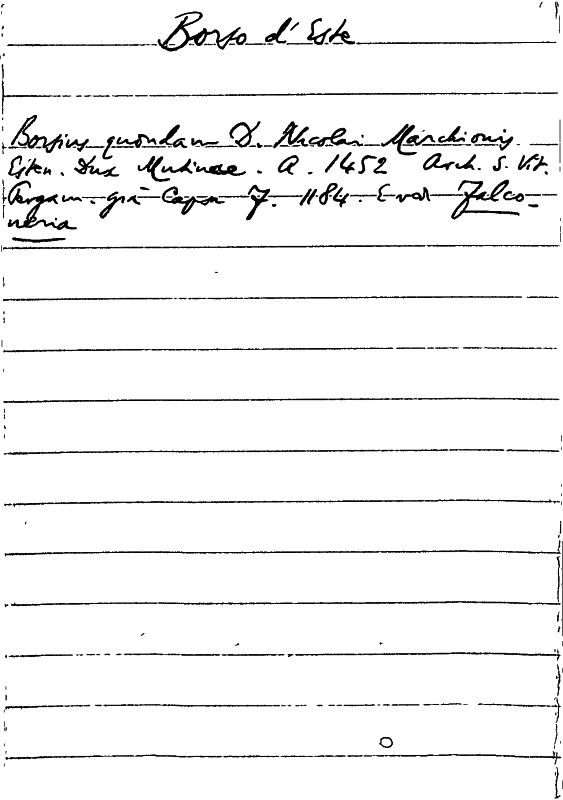 Borso d'Este
Borsius quondam D. Nicolai Marchionis
Esten. Dux Mutinae. A. 1452 Arch. S. Vit.
Pergam. già Capsa 7. 1184. E vol Falco-
neria